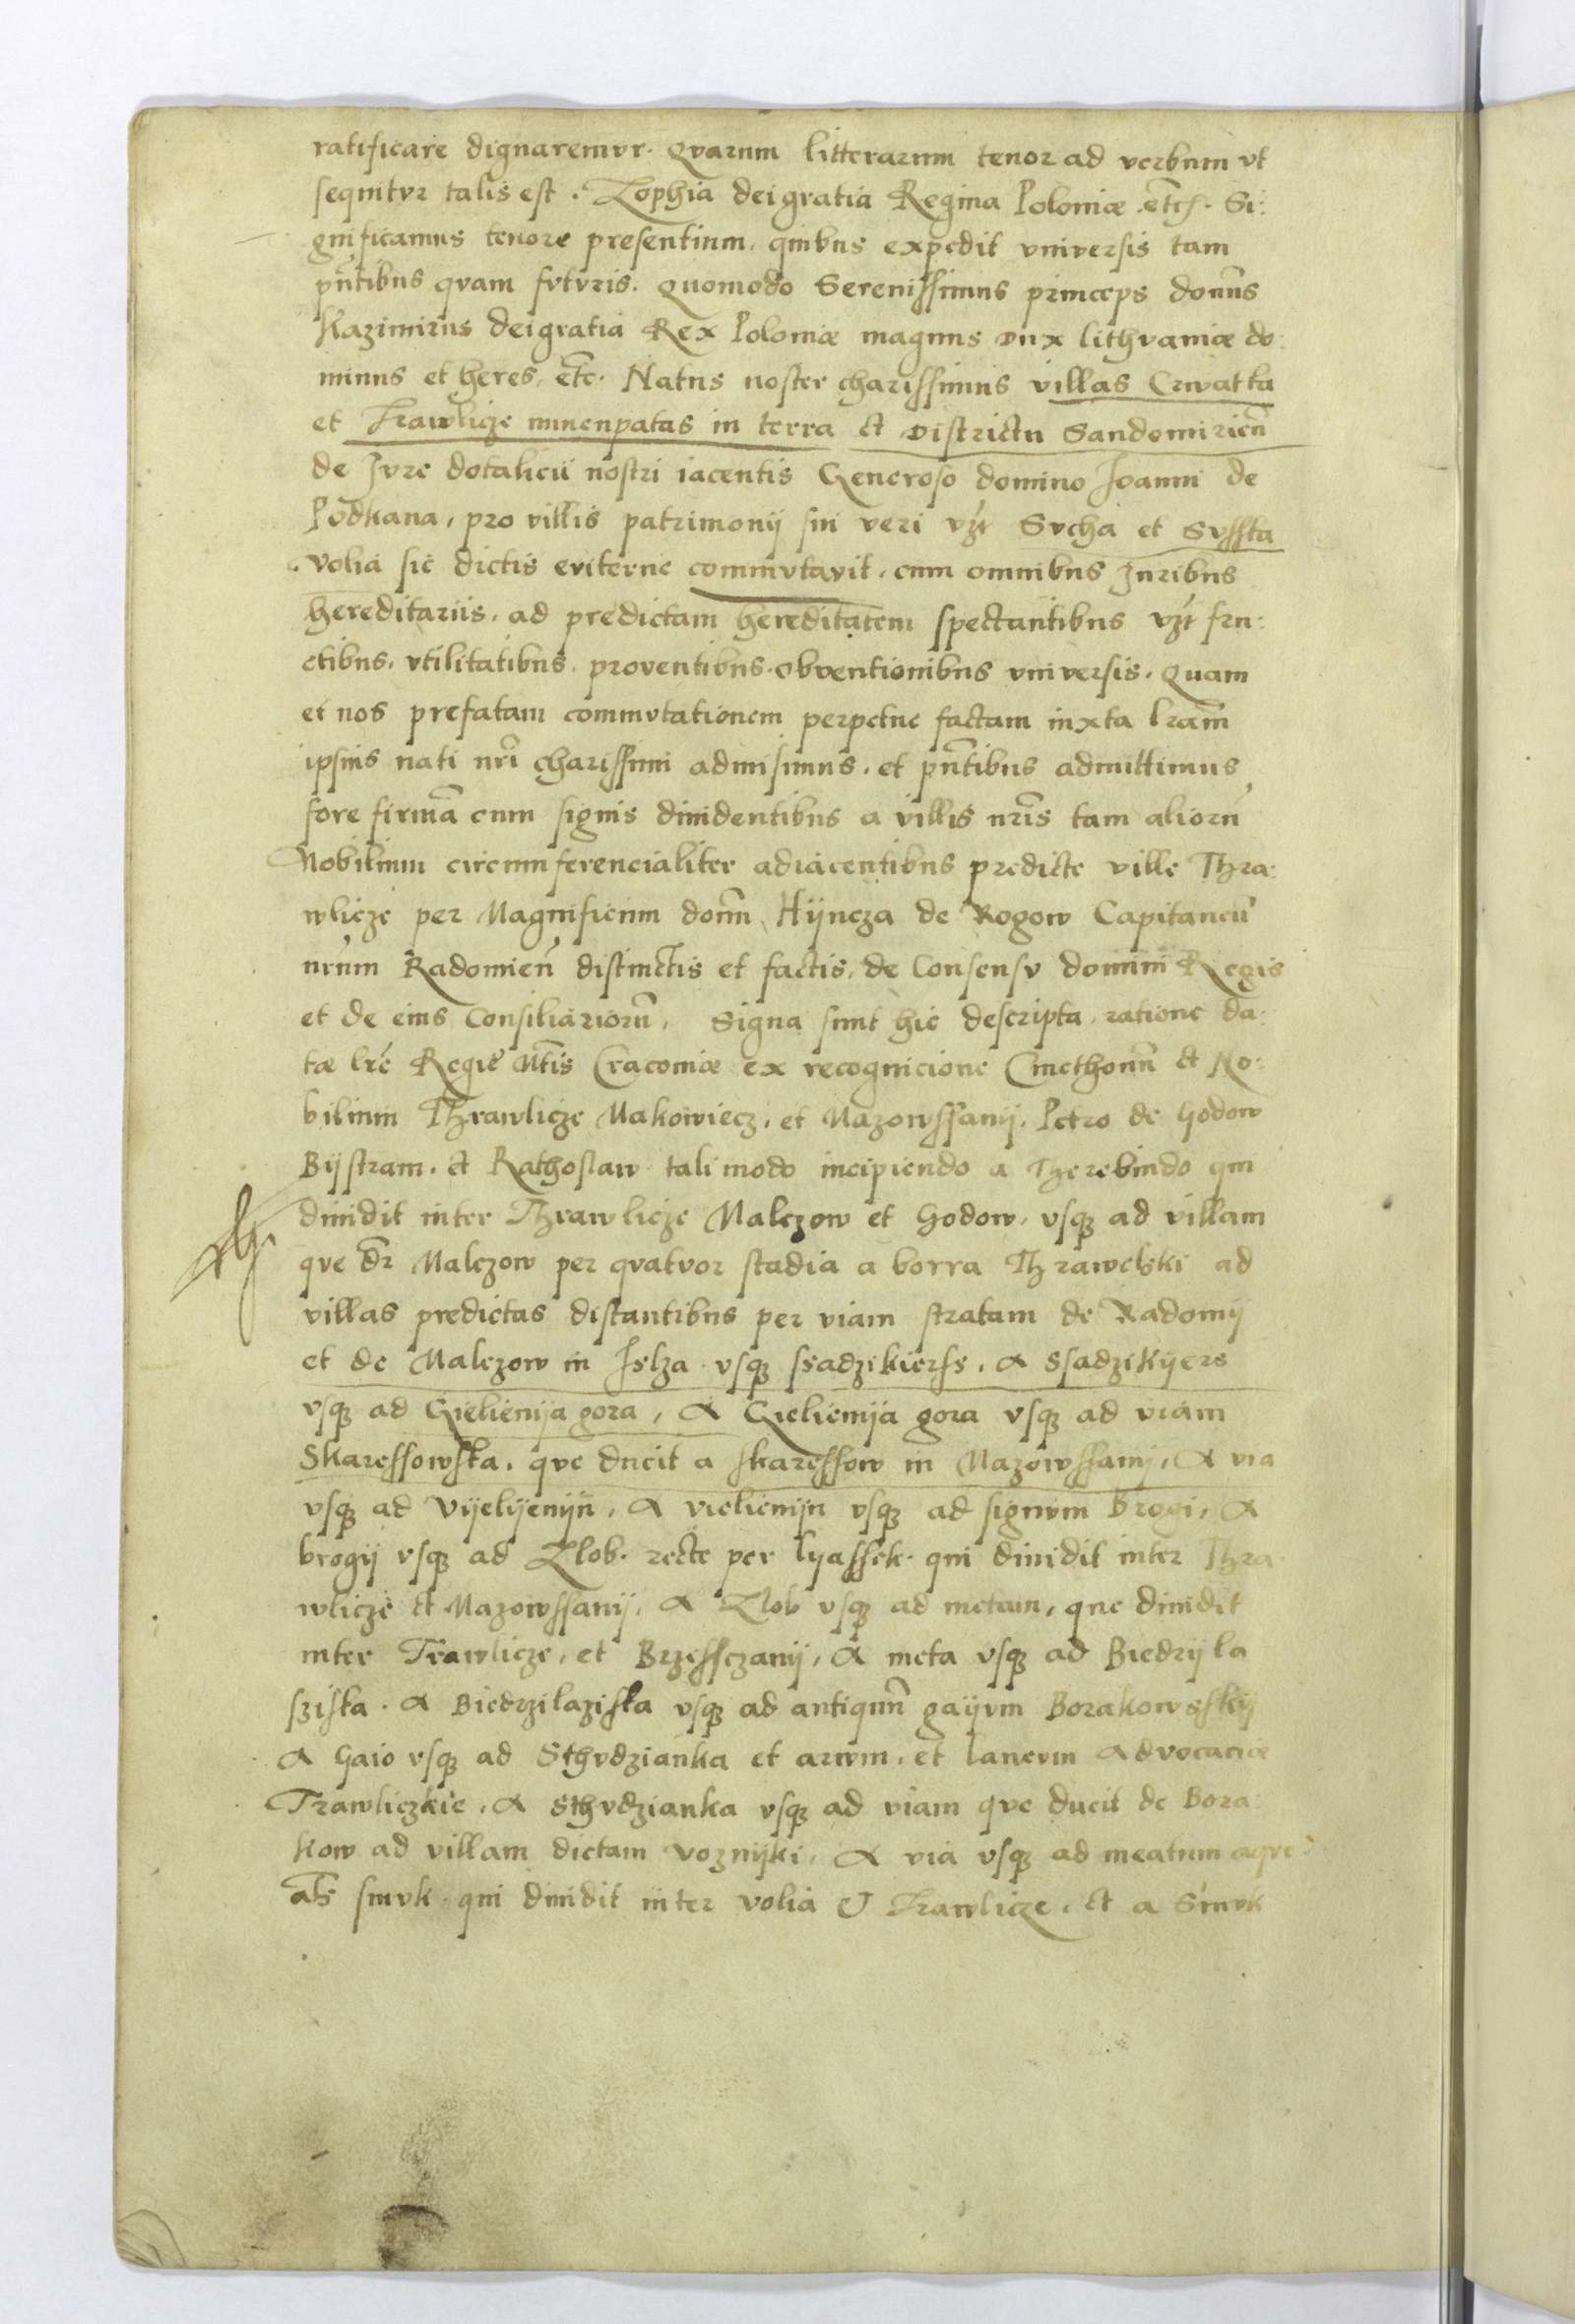 ratificare dignaremvr. Qvarum litterarum tenor ad verbum vt
sequitvr talis est. Zophia dei gratia Regina Poloniæ .etc. Si:
gnificamus tenore presentium, quibus expedit vniversis tam
pntibus qvam fvtvris. Quomodo Serenissimus princeps domns
Kazimirus dei gratia Rex Poloniæ magnus Dux lithvaniæ do:
minus et heres, etc. Natus noster charissimus villas Crwatka
et Trawlicze nuncupatas in terra et Districtu Sandomirien
de Jvre dotalicii nostri iacentis Generoso domino Joanni de
Podkana, pro villis patrimonij sui veri vzt Svcha et Svsska
Volia sic dictis eviterne commvtavit, cum omnibus Juribus
hereditariis, ad predictam hereditatem spectantibus vzt fru:
ctibus, vtilitatibus, proventibus, obventionibus vniversis. Quam
et nos prefatam commvtationem perpetue factam iuxta lram
ipsius nati nri charissimi admisimus, et pntibus admittimus
fore firma cum signis dividentibus a villis nris tam alioru
Nobilium circumferencialiter adiacentibus predicte ville Thra:
wlicze per Magnificum domn Hijncza de Rogow Capitaneu
nrum Radomien distinctis et factis, de Consensv domini Regis
et de eius Consiliarioru, Signa sunt hic descripta, ratione da:
tæ lre Regie Mtis Cracoviæ ex recognicione Cmethonu et No:
bilium Thrawlicze Makowiecz, et Mazowssanij, Petro de Godow
Bijstram, et Rathoslaw tali modo incipiendo a Therebindo qui
dividit inter Thrawlicze Malczow et Godow, vsq3 ad villam
qve dr Malczow per qvatvor stadia a borra Thrawelski ad
villas predictas distantibus per viam stratam de Radomij
et de Malczow in Jslza vsq3 ssadzikierss, A Ssadzikijers
vsq3 ad Gielienija gora, A Gielienija gora vsq3 ad viam
Skaressowska, qve ducit a skaressow in Mazowssanij, A via
vsq3 ad Vijelijenijn, A vielienijn vsq3 ad signvm Brogi, A
brogij vsq3 ad Zlob. recte per lyassek. qui dividit inter Thra
wlicze et Mazowssanij, A Zlob vsq3 ad metam, que dividit
inter Trawlicze, et Brzessczanij, A meta vsq3 ad Biedrijla
sziska. A Biedrzilaziska vsq3 ad antiquu gaijvm Borakowsskij
A Gaio vsq3 ad Sthvdzianka et arwm, et lanevm Advocaciæ
Trawliczkie, A Sthvdzianka vsq3 ad viam qve ducit de Bora:
kow ad villam dictam Voznijki, A via vsq3 ad meatum aqve
als smvk qui dividit inter volia & Trawlicze, et a Smvk